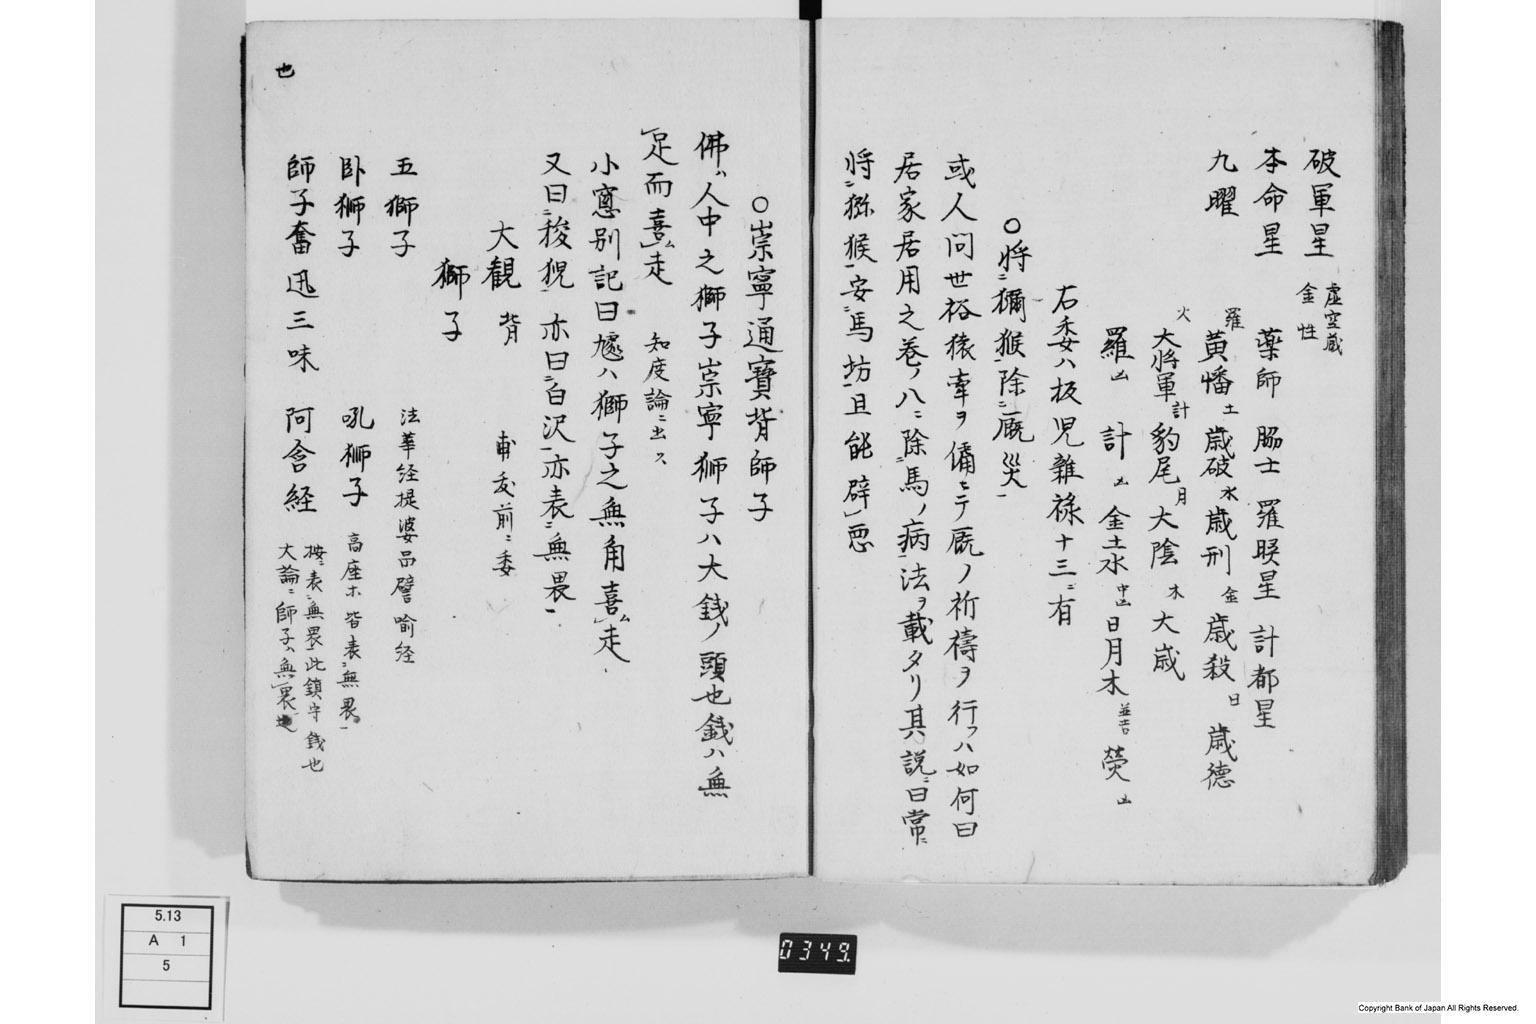 破軍星 虚空蔵
金性
本命星 薬師 脇士 羅睺星 計都星
九曜 羅 黄幡 土 歳破 水 歳刑 金 歳殺 日 歳徳
火 大将軍 計 豹尾 月 大陰 木 大歳
羅 凶 計 凶 金土水 中凶 日月木 並吉 熒 凶
右委ハ扳児雑禄十三ニ有
〇将ニ獼猴除ニ厩災一
或人問世裕猿牽ヲ傭ヒテ厩ノ祈禱ヲ行フハ如何曰
居家居用之巻ノ八ニ除馬ノ病法ヲ載タリ其説ニ曰常ニ
将ニ猕猴一安ニ馬坊一且能辟悪
〇崇寧通寶背師子
佛ハ人中之獅子崇寧狮子ハ大銭ノ頭也銭ハ無
足而喜ム走 知度論ニ出ス
小窓别記曰 ハ獅子之無角喜ム走
又曰ニ狻猊一亦曰ニ白沢一亦表ニ無畏一
大観背 前ニ委
獅子
五獅子 法華経提婆品譬喻経
卧狮子 吼狮子 高座ホ皆表ニ無畏一
師子奮迅三味 阿含経 按ニ表ニ無畏一此鎮守銭也
大論ニ師子ハ無畏
也
5.13
A 1
5
0349.
Copyright Bank of Japan All Rights Reserved.